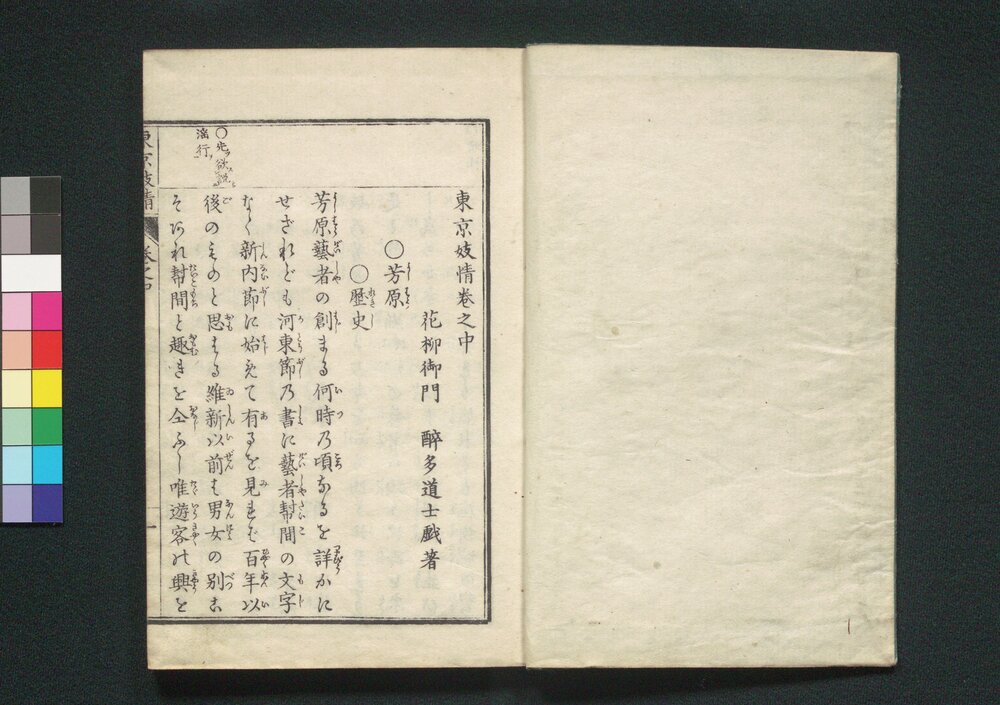 東京妓情卷之中
花柳御門 醉多道士戯著
〇芳原
〇歴史
芳原藝者の創まる何時乃頃なるを詳かに
せざれども河東節乃書に藝者幇間の文字
なく新内節に始めて有るを見れば百年以
後のものと思はる維新以前は男女の別こ
そあれ幇間と趣きを仝ふし唯遊客の興を
淫行
東京妓情
卷之中
一